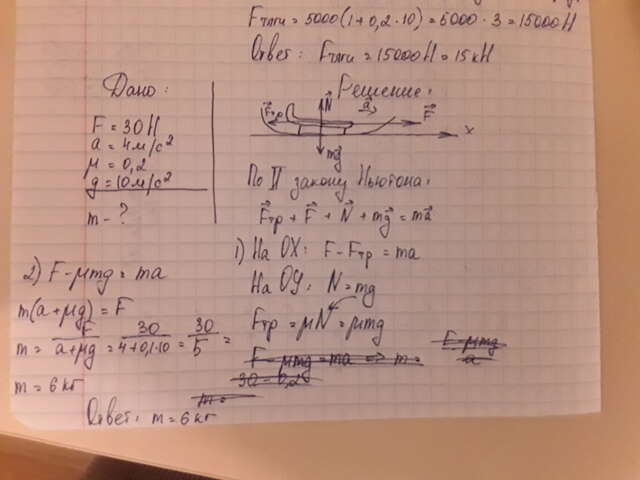 Fтяги = 5000(1+0,2·10) = 5000·3 = 15000Н
Ответ: Fтяги = 15000Н = 15кН
Дано:
F = 30Н
a = 4м/с²
μ = 0,2
g = 10м/с²
m - ?
Решение:
a
Fтр
N
F
mg
x
По II закону Ньютона:
Fтр + F + N + mg = ma
1) На OX: F - Fтр = ma
На OY: N = mg
Fтр = μN = μmg
F - μmg = ma => m = F - μmg / a
m =
2) F - μmg = ma
m(a+μg) = F
m = F / a+μg = 30 / 4+0,1·10 = 30 / 5 =
m = 6 кг
Ответ: m = 6 кг